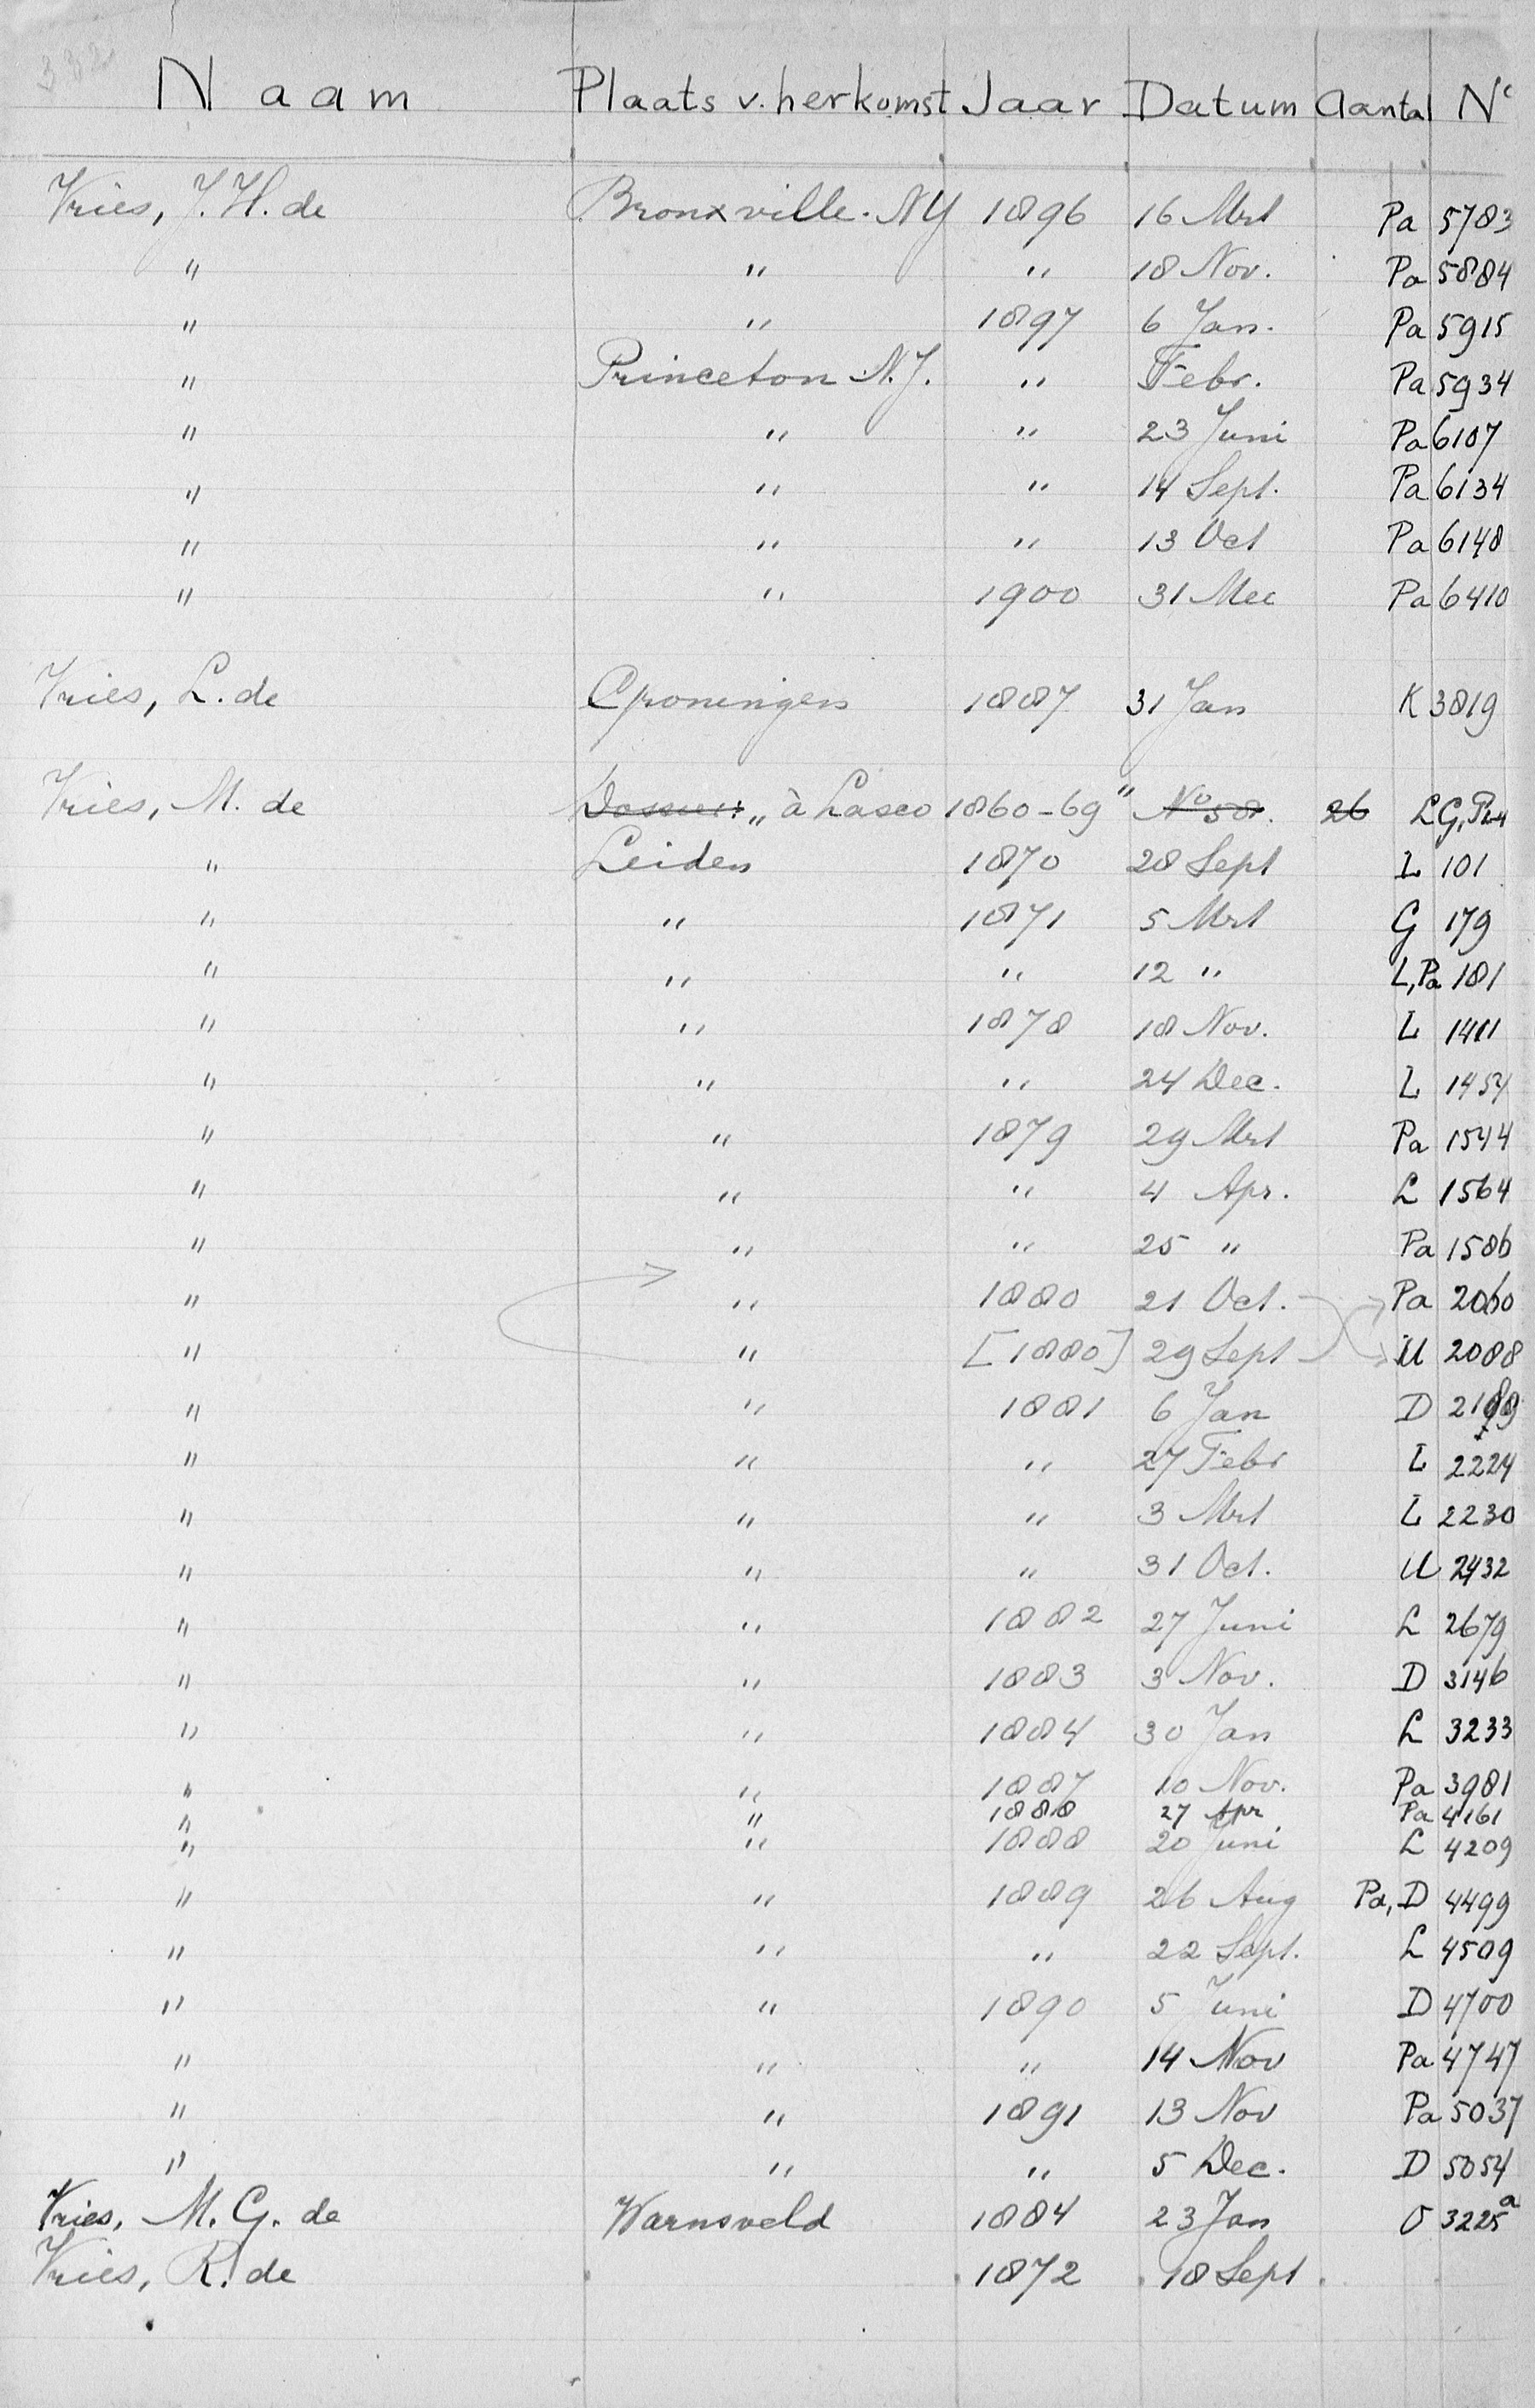 332
Naam Plaats v. herkomst Jaar Datum Aantal No
Vries, J. H. de Bronxville. NY 1896 16 Mrt Pa 5783
" " " 18 Nov. Pa 5884
" " 1897 6 Jan. Pa 5915
" Princeton N.J. " Febr. Pa 5934
" " " 23 Juni Pa 6107
" " " 14 Sept. Pa 6134
" " " 13 Oct Pa 6148
" " 1900 31 Mei Pa 6410
Vries, L. de Groningen 1887 31 Jan K 3819
Vries, M. de Dossier: „ à Lasco 1860-69" No 58. 26 LG, Pa
" Leiden 1870 28 Sept L 101
" " 1871 5 Mrt G 179
" " " 12 " L, Pa 181
" " 1878 18 Nov. L 1411
" " " 24 Dec. L 1454
" " 1879 29 Mrt Pa 1544
" " " 4 Apr. L 1564
" " " 25 " Pa 1586
" " 1880 21 Oct. Pa 2060
" " [1880] 29 Sept U 2088
" " 1881 6 Jan D 2189
" " " 27 Febr L 2224
" " " 3 Mrt L 2230
" " " 31 Oct. U 2432
" " 1882 27 Juni L 2679
" " 1883 3 Nov. D 3146
" " 1884 30 Jan L 3233
" " 1887 10 Nov. Pa 3981
" " 1888 27 Apr Pa 4161
" " 1888 20 Juni L 4209
" " 1889 26 Aug Pa, D 4499
" " " 22 Sept. L 4509
" " 1890 5 Juni D 4700
" " " 14 Nov Pa 4747
" " 1891 13 Nov Pa 5037
" " " 5 Dec. D 5054
Vries, M. G. de Warnsveld 1884 23 Jan O 3225a
Vries, R. de 1872 18 Sept.